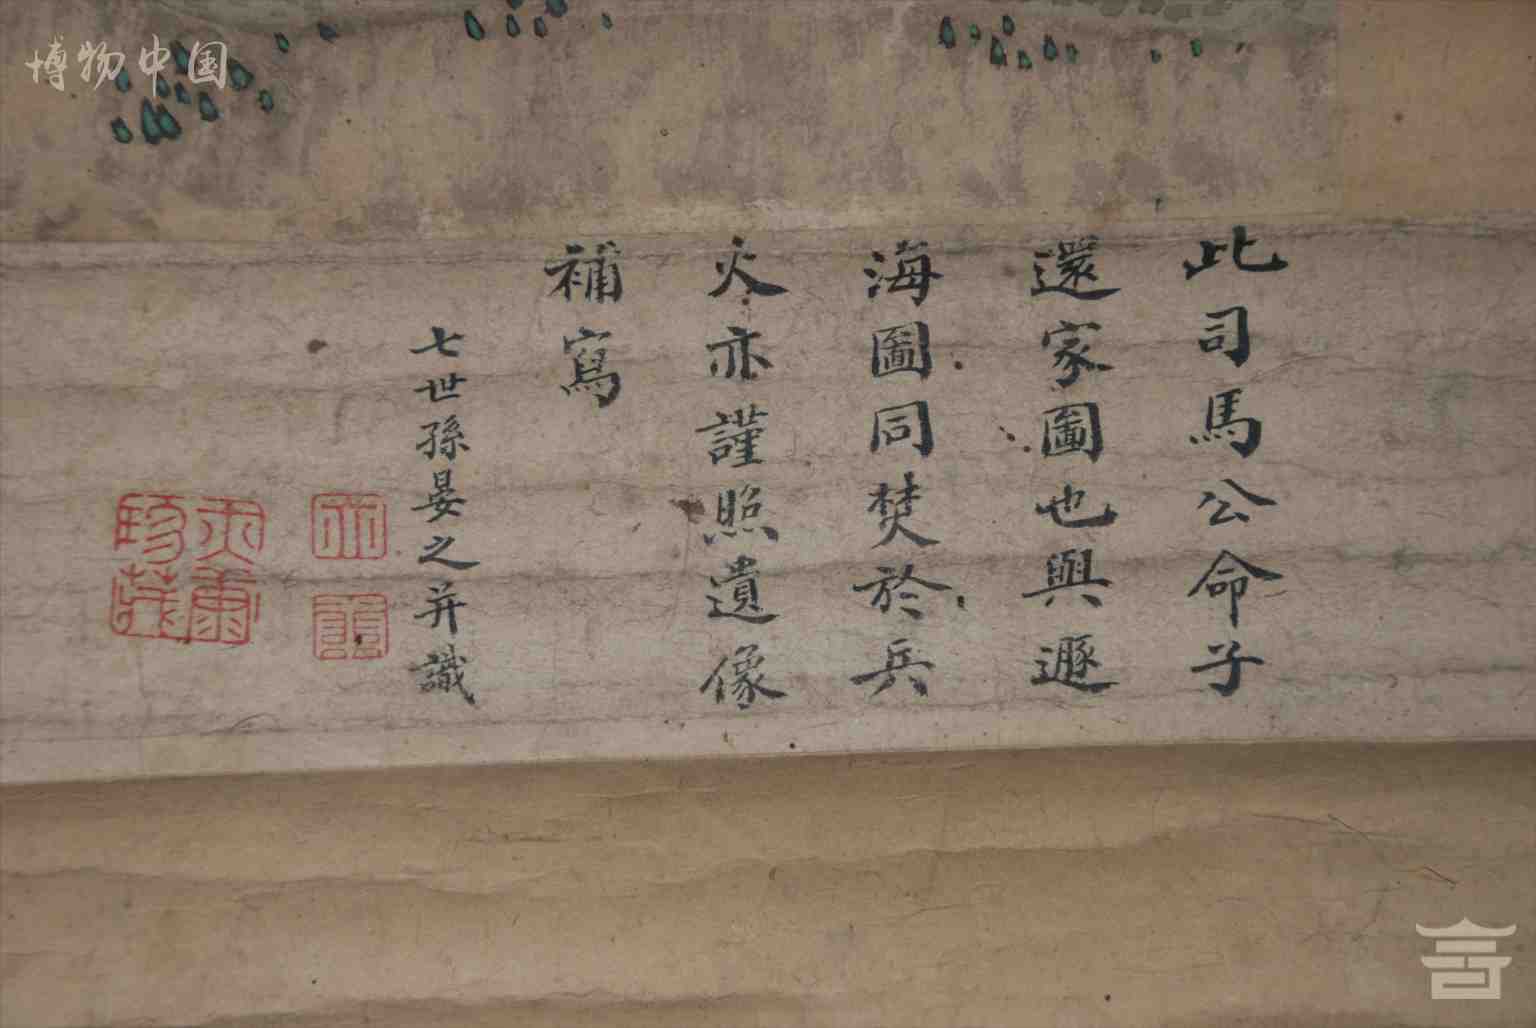 博物中国
此司馬公命子
還家圖也與遯
海圖同焚於兵
火亦謹照遺像
補寫
七世孫晏之并識